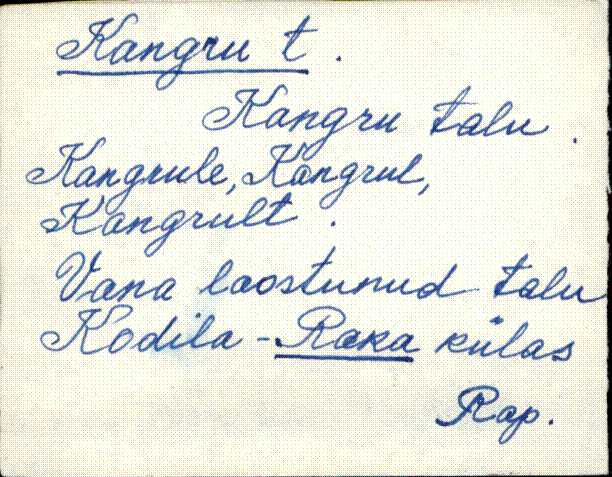 Kangru t.
Kangru talu.
Kangrule, Kangrul,
Kangrult.
Vana laostunud talu
Kodila - Raka külas
Rap.